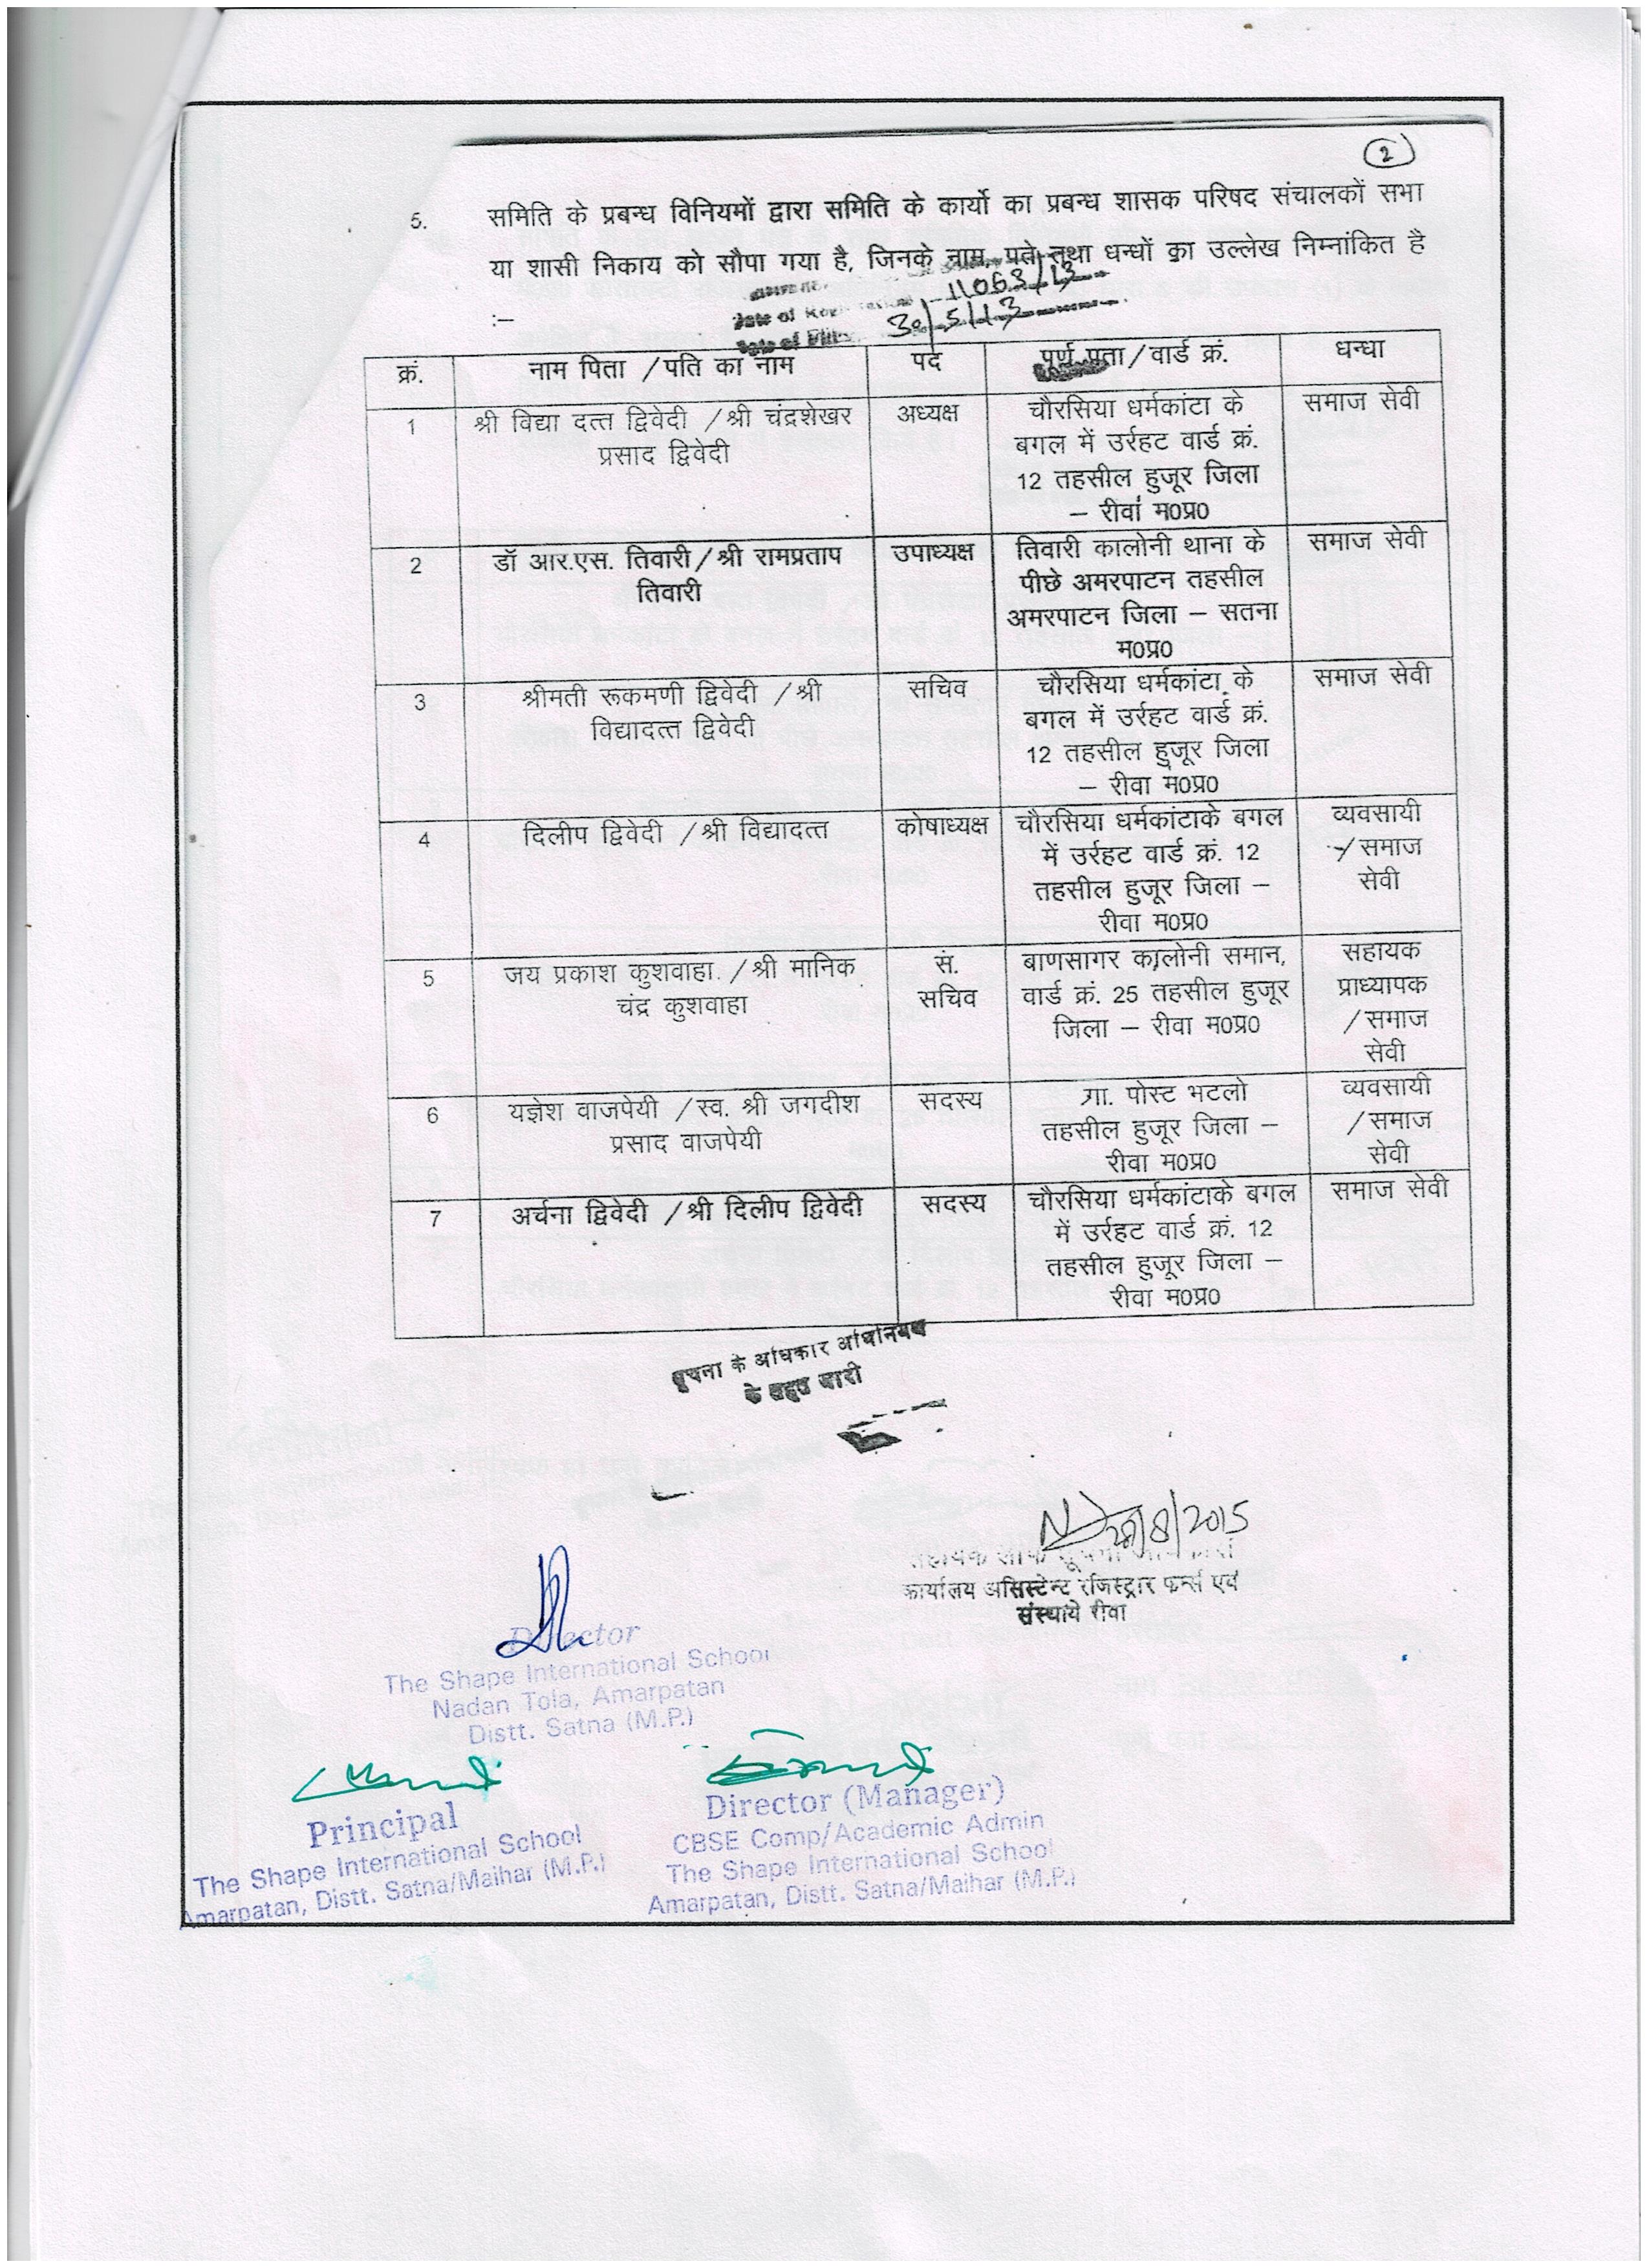 2
5. समिति के प्रबन्ध विनियमों द्वारा समिति के कार्यो का प्रबन्ध शासक परिषद संचालकों सभा
या शासी निकाय को सौपा गया है, जिनके नाम, पते तथा धन्धों का उल्लेख निम्नांकित है
:–
11063/13
Date of
30/5/13
Date of
क्रं. नाम पिता /पति का नाम पद पूर्ण पता/वार्ड क्रं. धन्धा
1 श्री विद्या दत्त द्विवेदी /श्री चंद्रशेखर अध्यक्ष चौरसिया धर्मकांटा के समाज सेवी
प्रसाद द्विवेदी बगल में उर्रहट वार्ड क्रं.
12 तहसील हुजूर जिला
– रीवां म0प्र0
2 डॉ आर.एस. तिवारी/श्री रामप्रताप उपाध्यक्ष तिवारी कालोनी थाना के समाज सेवी
तिवारी पीछे अमरपाटन तहसील
अमरपाटन जिला – सतना
म0प्र0
3 श्रीमती रूकमणी द्विवेदी /श्री सचिव चौरसिया धर्मकांटा के समाज सेवी
विद्यादत्त द्विवेदी बगल में उर्रहट वार्ड क्रं.
12 तहसील हुजूर जिला
– रीवा म0प्र0
4 दिलीप द्विवेदी /श्री विद्यादत्त कोषाध्यक्ष चौरसिया धर्मकांटाके बगल व्यवसायी
में उर्रहट वार्ड क्रं. 12 /समाज
तहसील हुजूर जिला – सेवी
रीवा म0प्र0
5 जय प्रकाश कुशवाहा. /श्री मानिक सं. बाणसागर कालोनी समान, सहायक
चंद्र कुशवाहा सचिव वार्ड क्रं. 25 तहसील हुजूर प्राध्यापक
जिला – रीवा म0प्र0 /समाज
सेवी
6 यज्ञेश वाजपेयी /स्व. श्री जगदीश सदस्य ग्रा. पोस्ट भटलो व्यवसायी
प्रसाद वाजपेयी तहसील हुजूर जिला – /समाज
रीवा म0प्र0 सेवी
7 अर्चना द्विवेदी /श्री दिलीप द्विवेदी सदस्य चौरसिया धर्मकांटाके बगल समाज सेवी
में उर्रहट वार्ड क्रं. 12
तहसील हुजूर जिला –
रीवा म0प्र0
सूचना के अधिकार अधिनियम
के तहत जारी
/8/2015
कार्यालय असिस्टेन्ट रजिस्ट्रार फर्म्स एवं
संस्थाये रीवा
Director
The Shape International School
Nadan Tola, Amarpatan
Distt. Satna (M.P.)
Principal
The Shape International School
Amarpatan, Distt. Satna/Maihar (M.P.)
Director (Manager)
CBSE Comp/Academic Admin
The Shape International School
Amarpatan, Distt. Satna/Maihar (M.P.)